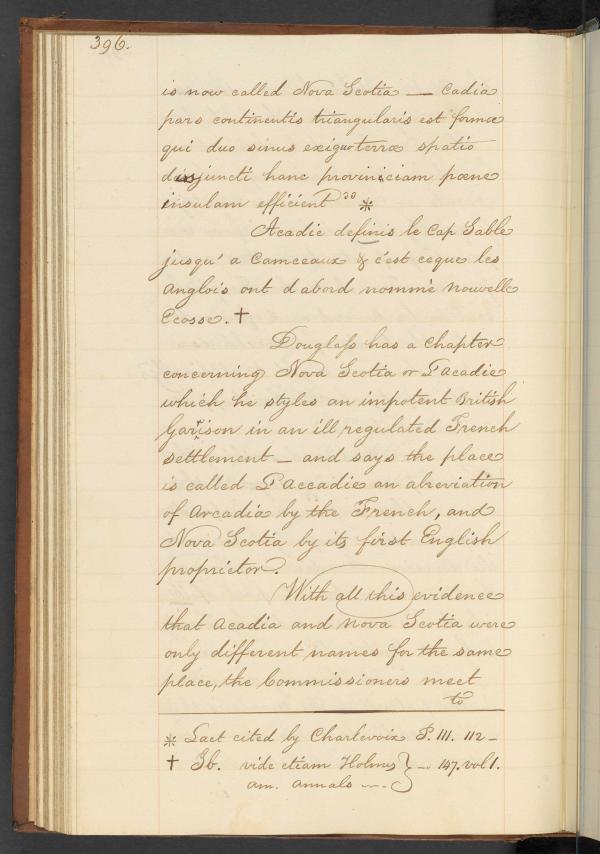 396.
is now called Nova Scotia — Cadia
pars continentis triangularis est formæ
qui duo sinus exiguoterræ spatio
disjuncti hanc provinciam pœne
insulam efficient" *
Acadie definis le Cap Sable
jusqu' a Camceaux & c'est ceque les
Anglois ont d abord nommè nouvelle
Ecosse. †
Douglass has a Chapter
concerning Nova Scotia or L'Acadie
which he styles an impotent British
Garison in an ill regulated French
settlement — and says the place
is called L'Accadie an abreviation
of Arcadia by the French, and
Nova Scotia by its first English
proprietor.
With all this evidence
that Acadia and Nova Scotia were
only different names for the same
place, the Commissioners meet
to
* Laet cited by Charlevoix P. 111. 112 —
† Ib. vide etiam Holmes } — 147. vol 1.
am. annals —